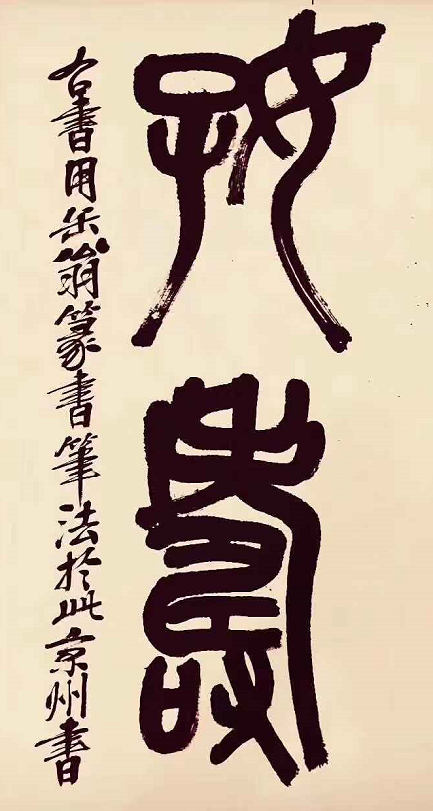 好壽
右書用缶翁篆書筆法於此京州書